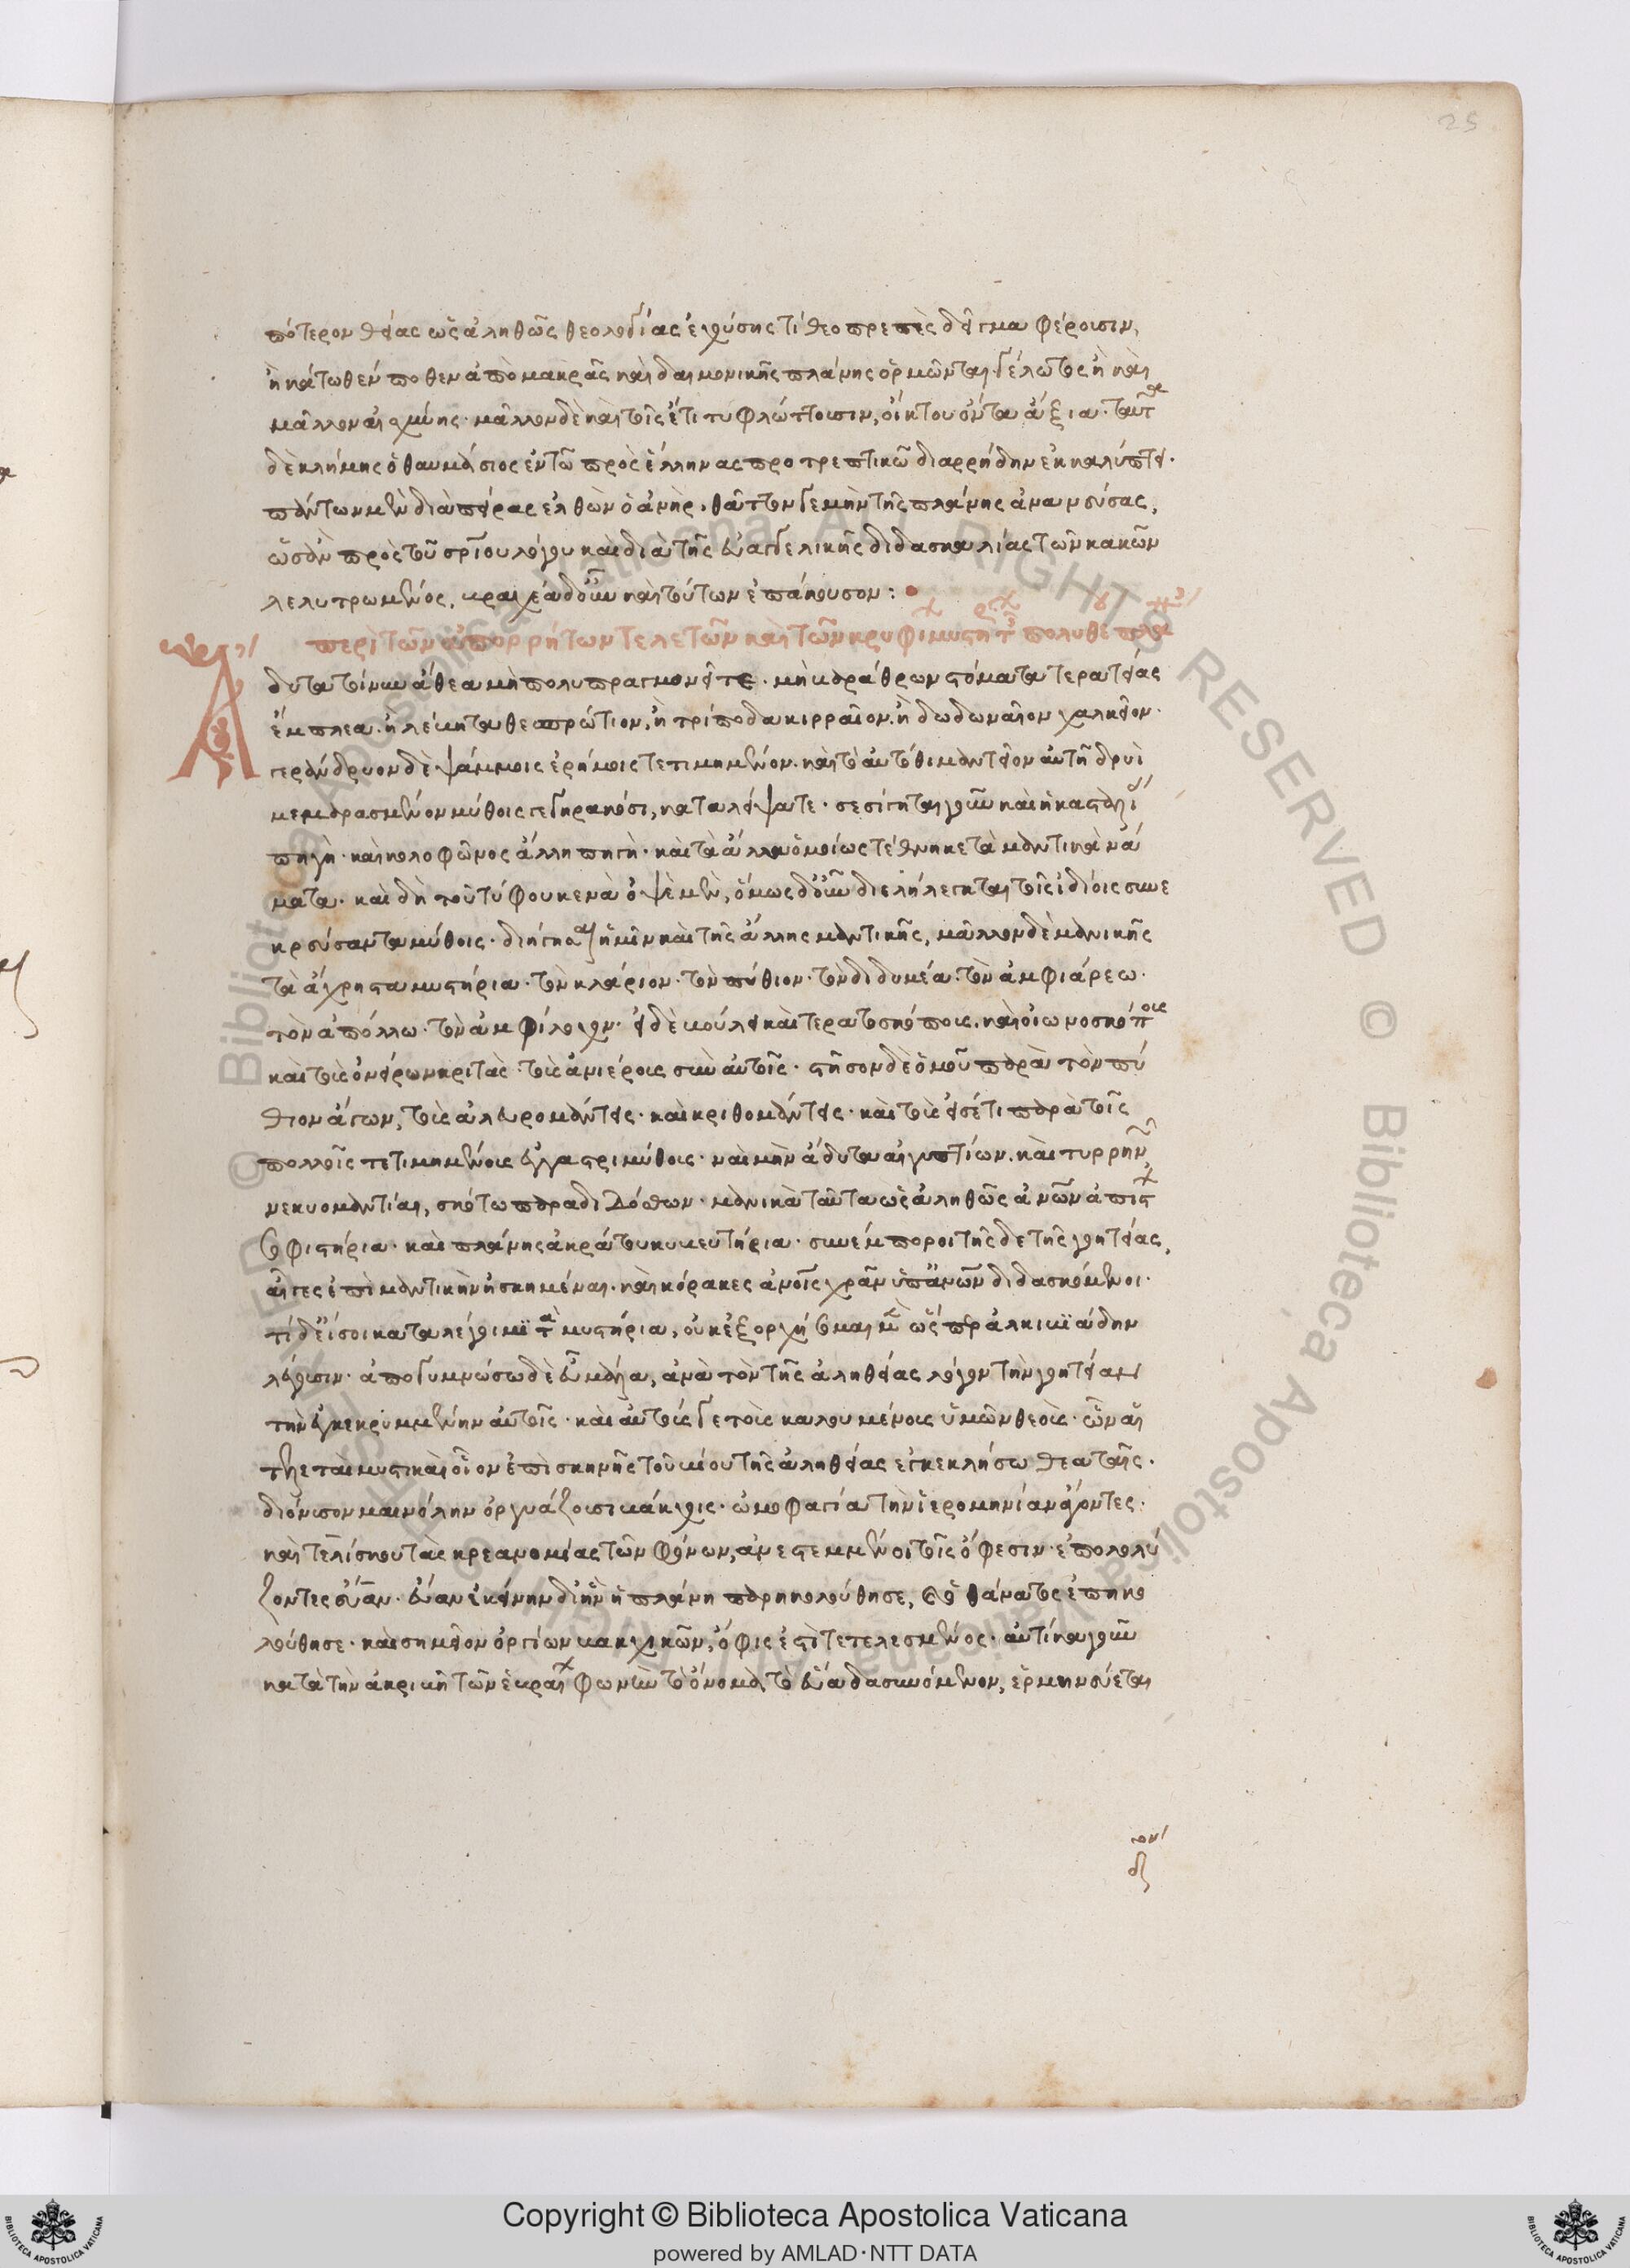 25
πότερον θείας ὡς ἀληθῶς θεολογίας ἐχούσης τί θεοπρεπὲς δεῖγμα φέρουσιν,
ἢ κάτωθέν ποθεν ἀπὸ μακρᾶς καὶ δαιμονικῆς πλάνης ὁρμῶνται. γέλωτος ἢ καὶ
μᾶλλον αἰσχύνης. μᾶλλον δὲ καὶ τοῖς ἔτι τυφλώττουσιν, οἴκτου ὄντα ἄξια. ταῦτα
δὲ κλήμης ὁ θαυμάσιος ἐν τῶ πρὸς ἕλληνας προτρεπτικῶ διαρρήδην ἐκκαλύπτει.
πάντων μὲν διὰ πείρας ἐλθὼν ὁ ἀνὴρ. θᾶττον γε μὴν τῆς πλάνης ἀνανεύσας,
ὡσὰν πρὸς τοῦ σρίου λόγου καὶ διὰ τῆς εὐαγγελικῆς διδασκαλίας τῶν κακῶν
λελυτρωμένος, βραχέα δ' οὖν καὶ τούτων ἐπάκουσον:
περὶ τῶν ἀπορρήτων τελετῶν καὶ τῶν κρυφί μυστη τ πολυθέ πλα
Ἄδυτα τοίνυν ἄθεα μὴ πολυπραγμονεῖτε. μὴ βαράθρων στόματα τερατείας
ἔμπλεα. ἢ λέβητα θεσπρώτιον, ἢ τρίποδα κιρραῖον. ἢ δωδωναῖον χαλκεῖον.
γεράνδρυον δὲ ψάμμοις ἐρήμοις τετιμημένον. καὶ τὸ αὐτόθι μαντεῖον αὐτῆ δρυὶ
μεμαρασμένον μύθοις γεγηρακόσι, καταλείψατε. σεσίγηται γοῦν καὶ ἡ κασταλί
πηγή. καὶ κολοφῶνος ἄλλη πηγή. καὶ τὰ ἄλλα ὁμοίως τέθνηκε τὰ μαντικὰ νά
ματα. καὶ δὴ τοῦ τύφου κενὰ ὀψὲ μὲν, ὅμως δ' οὖν διελήλεγκται τοῖς ἰδίοις συνε
κρεύσαντα μύθοις. διήγησαι ἡμῖν καὶ τῆς ἄλλης μαντικῆς, μᾶλλον δὲ μανικῆς
τὰ ἄχρηστα μυστήρια. τὸν κλάριον. τὸν πύθιον. τὸν διδυμέα. τὸν ἀμφιάρεω.
τὸν ἀπόλλω. τὸν ἀμφίλοχον. εἰ δὲ βούλει καὶ τερατοσκόπους. καὶ οἰωνοσκόπους
καὶ τοὺς ὀνείρων κριτὰς τοὺς ἀνιέρους σὺν αὐτοῖς. στῆσον δὲ ὁμοῦ παρὰ τὸν πύ
θιον ἄγων, τοὺς ἀλευρομάντεις. καὶ κριθομάντεις. καὶ τοὺς εἰσέτι παρὰ τοῖς
πολλοῖς τετιμημένους ἐγγαστριμύθους. ναὶ μὴν ἄδυτα αἰγυπτίων. καὶ τυρρην
νεκυομαντίαι, σκότω παραδιδόσθων. μανικὰ ταῦτα ὡς ἀληθῶς ἀνῶν ἀπίστ
σοφιστήρια. καὶ πλάνης ἀκράτου κυβευτήρια. συνέμποροι τῆς δε τῆς γοητείας,
αἶγες ἐπὶ μαντικὴν ἠσκημέναι. καὶ κόρακες ἀνοῖς χρᾶν ὑπ' ἀνῶν διδασκόμενοι.
τί δ' εἴ σοι καταλέγοιμι τὰ μυστήρια, οὐκ ἐξορχήσομαι μὲν ὥσπερ ἀλκιβιάδην
λέγουσιν. ἀπογυμνώσω δὲ εὖ μάλα, ἀνὰ τὸν τῆς ἀληθείας λόγον τὴν γοητείαν
τὴν ἐγκεκρυμμένην αὐτοῖς. καὶ αὐτούς γε τοὺς καλουμένους ὑμῶν θεοὺς. ὧν αἱ
τελεταὶ μυστικαὶ οἷον ἐπὶ σκηνῆς τοῦ βίου τῆς ἀληθείας ἐγκεκλήσω θεαταῖς.
διόνυσον μαινόλην ὀργιάζουσι βάκχοις. ὠμοφαγία τὴν ἱερομηνίαν ἄγοντες.
καὶ τελίσκου τὰς κρεανομίας τῶν φόνων, ἀνεστεμμένοι τοῖς ὄφεσιν. ἐπολολύ
ζοντες εὐάν. εὔαν ἐκείνην δι' ἣν ἡ πλάνη παρηκολούθησε, καὶ ὁ θάνατος ἐπηκο
λούθησε. καὶ σημεῖον ὀργίων βακχικῶν, ὄφις ἐστὶ τετελεσμένος. αὐτίκα γοῦν
κατὰ τὴν ἀκριβῆ τῶν ἑβραί φωνὴν τὸ ὄνομα τὸ εὔα δασυνόμενον, ἑρμηνεύεται